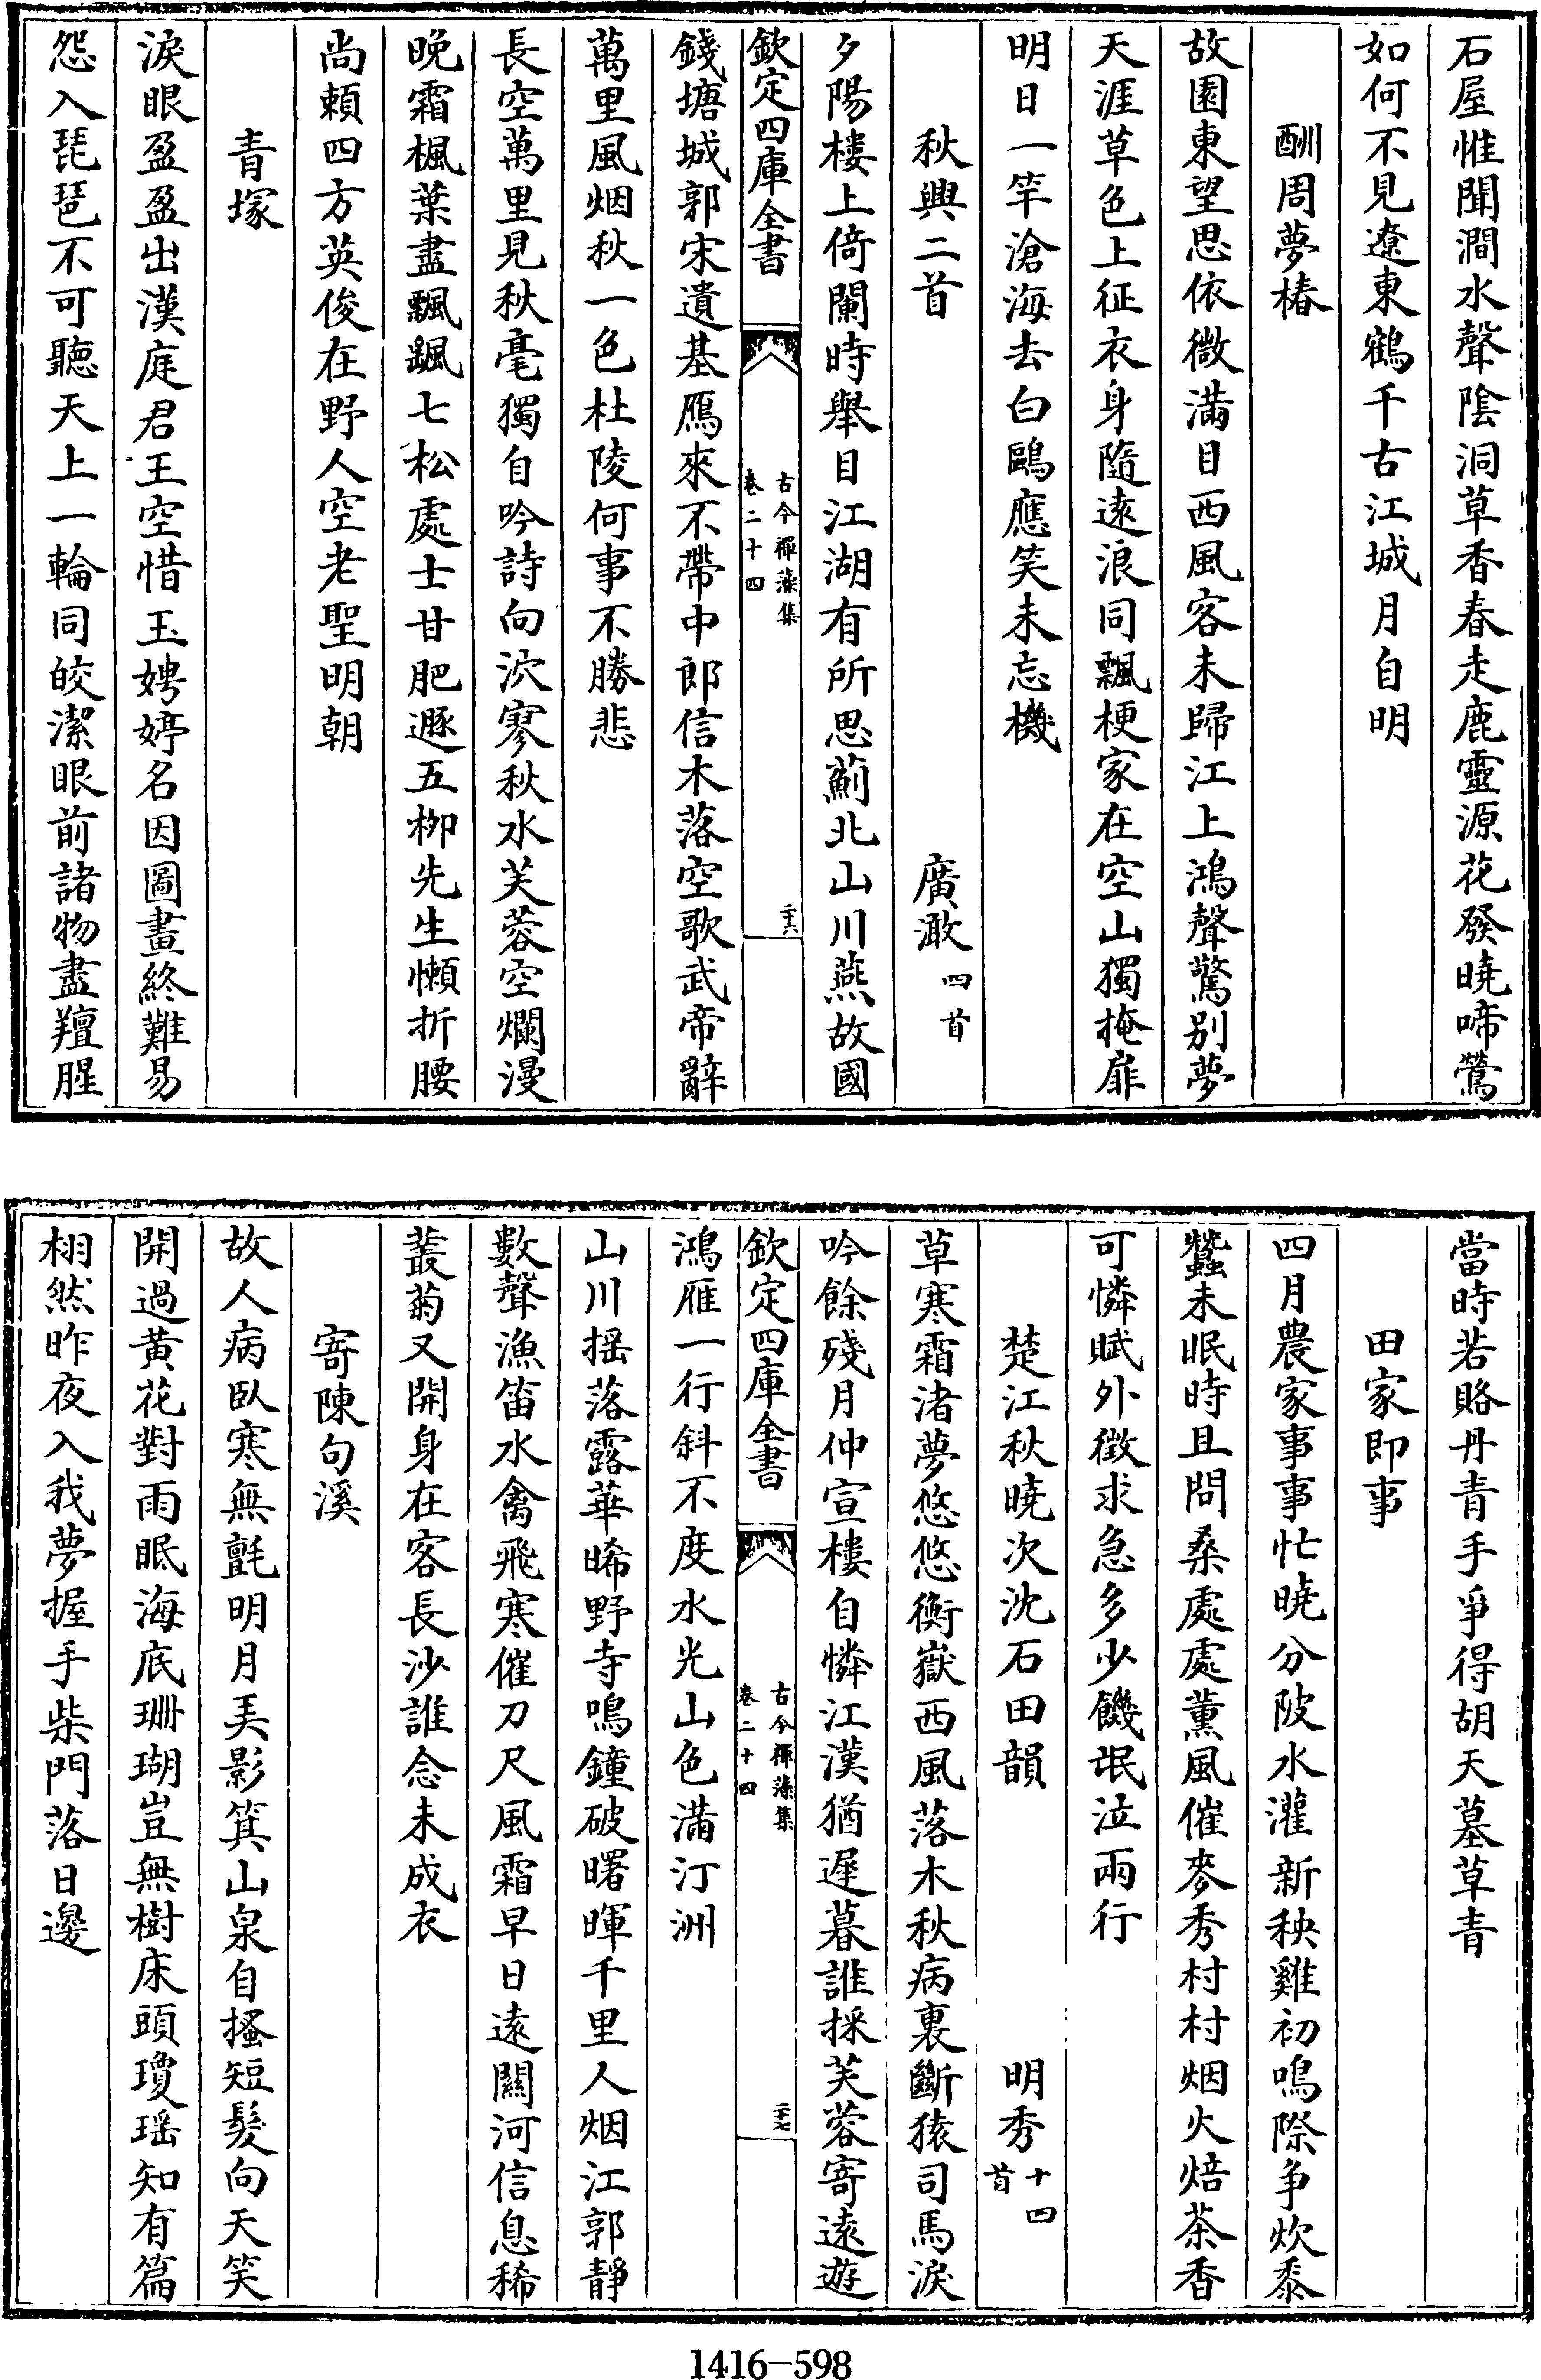 石屋惟聞澗水聲陰洞草香春走鹿靈源花發曉啼鶯
如何不見遼東鶴千古江城月自明
酬周夢椿
故園東望思依微滿目西風客未歸江上鴻聲驚别夢
天涯草色上征衣身隨遠浪同飄梗家在空山獨掩扉
明日一竿滄海去白鷗應笑未忘機
秋興二首　廣漵四首
夕陽樓上倚闌時舉目江湖有所思薊北山川燕故國
欽定四庫全書　古今禪藻集　卷二十四　二十六
錢塘城郭宋遺基鴈來不帶中郎信木落空歌武帝辭
萬里風烟秋一色杜陵何事不勝悲
長空萬里見秋毫獨自吟詩向泬寥秋水芙蓉空爛漫
晚霜楓葉盡飄颻七松處士甘肥遯五栁先生懶折腰
尚賴四方英俊在野人空老聖明朝
青塚
淚眼盈盈出漢庭君王空惜玉娉婷名因圖畫終難易
怨入琵琶不可聽天上一輪同皎潔眼前諸物盡羶腥
當時若賂丹青手爭得胡天墓草青
田家即事
四月農家事事忙曉分陂水灌新秧雞初鳴際争炊黍
蠶未眠時且問桑處處薰風催麥秀村村烟火焙茶香
可憐賦外徵求急多少饑氓泣兩行
楚江秋曉次沈石田韻　明秀十四首
草寒霜渚夢悠悠衡嶽西風落木秋病裏斷猿司馬淚
吟餘殘月仲宣樓自憐江漢猶遲暮誰採芙蓉寄遠遊
欽定四庫全書　古今禪藻集　卷二十四　二十七
鴻雁一行斜不度水光山色滿汀洲
山川揺落露華晞野寺鳴鐘破曙暉千里人烟江郭靜
數聲漁笛水禽飛寒催刀尺風霜早日遠關河信息稀
叢菊又開身在客長沙誰念未成衣
寄陳句溪
故人病臥寒無氈明月美影箕山泉自搔短髮向天笑
開過黃花對雨眠海底珊瑚豈無樹床頭瓊瑶知有篇
栩然昨夜入我夢握手柴門落日邊
1416-598